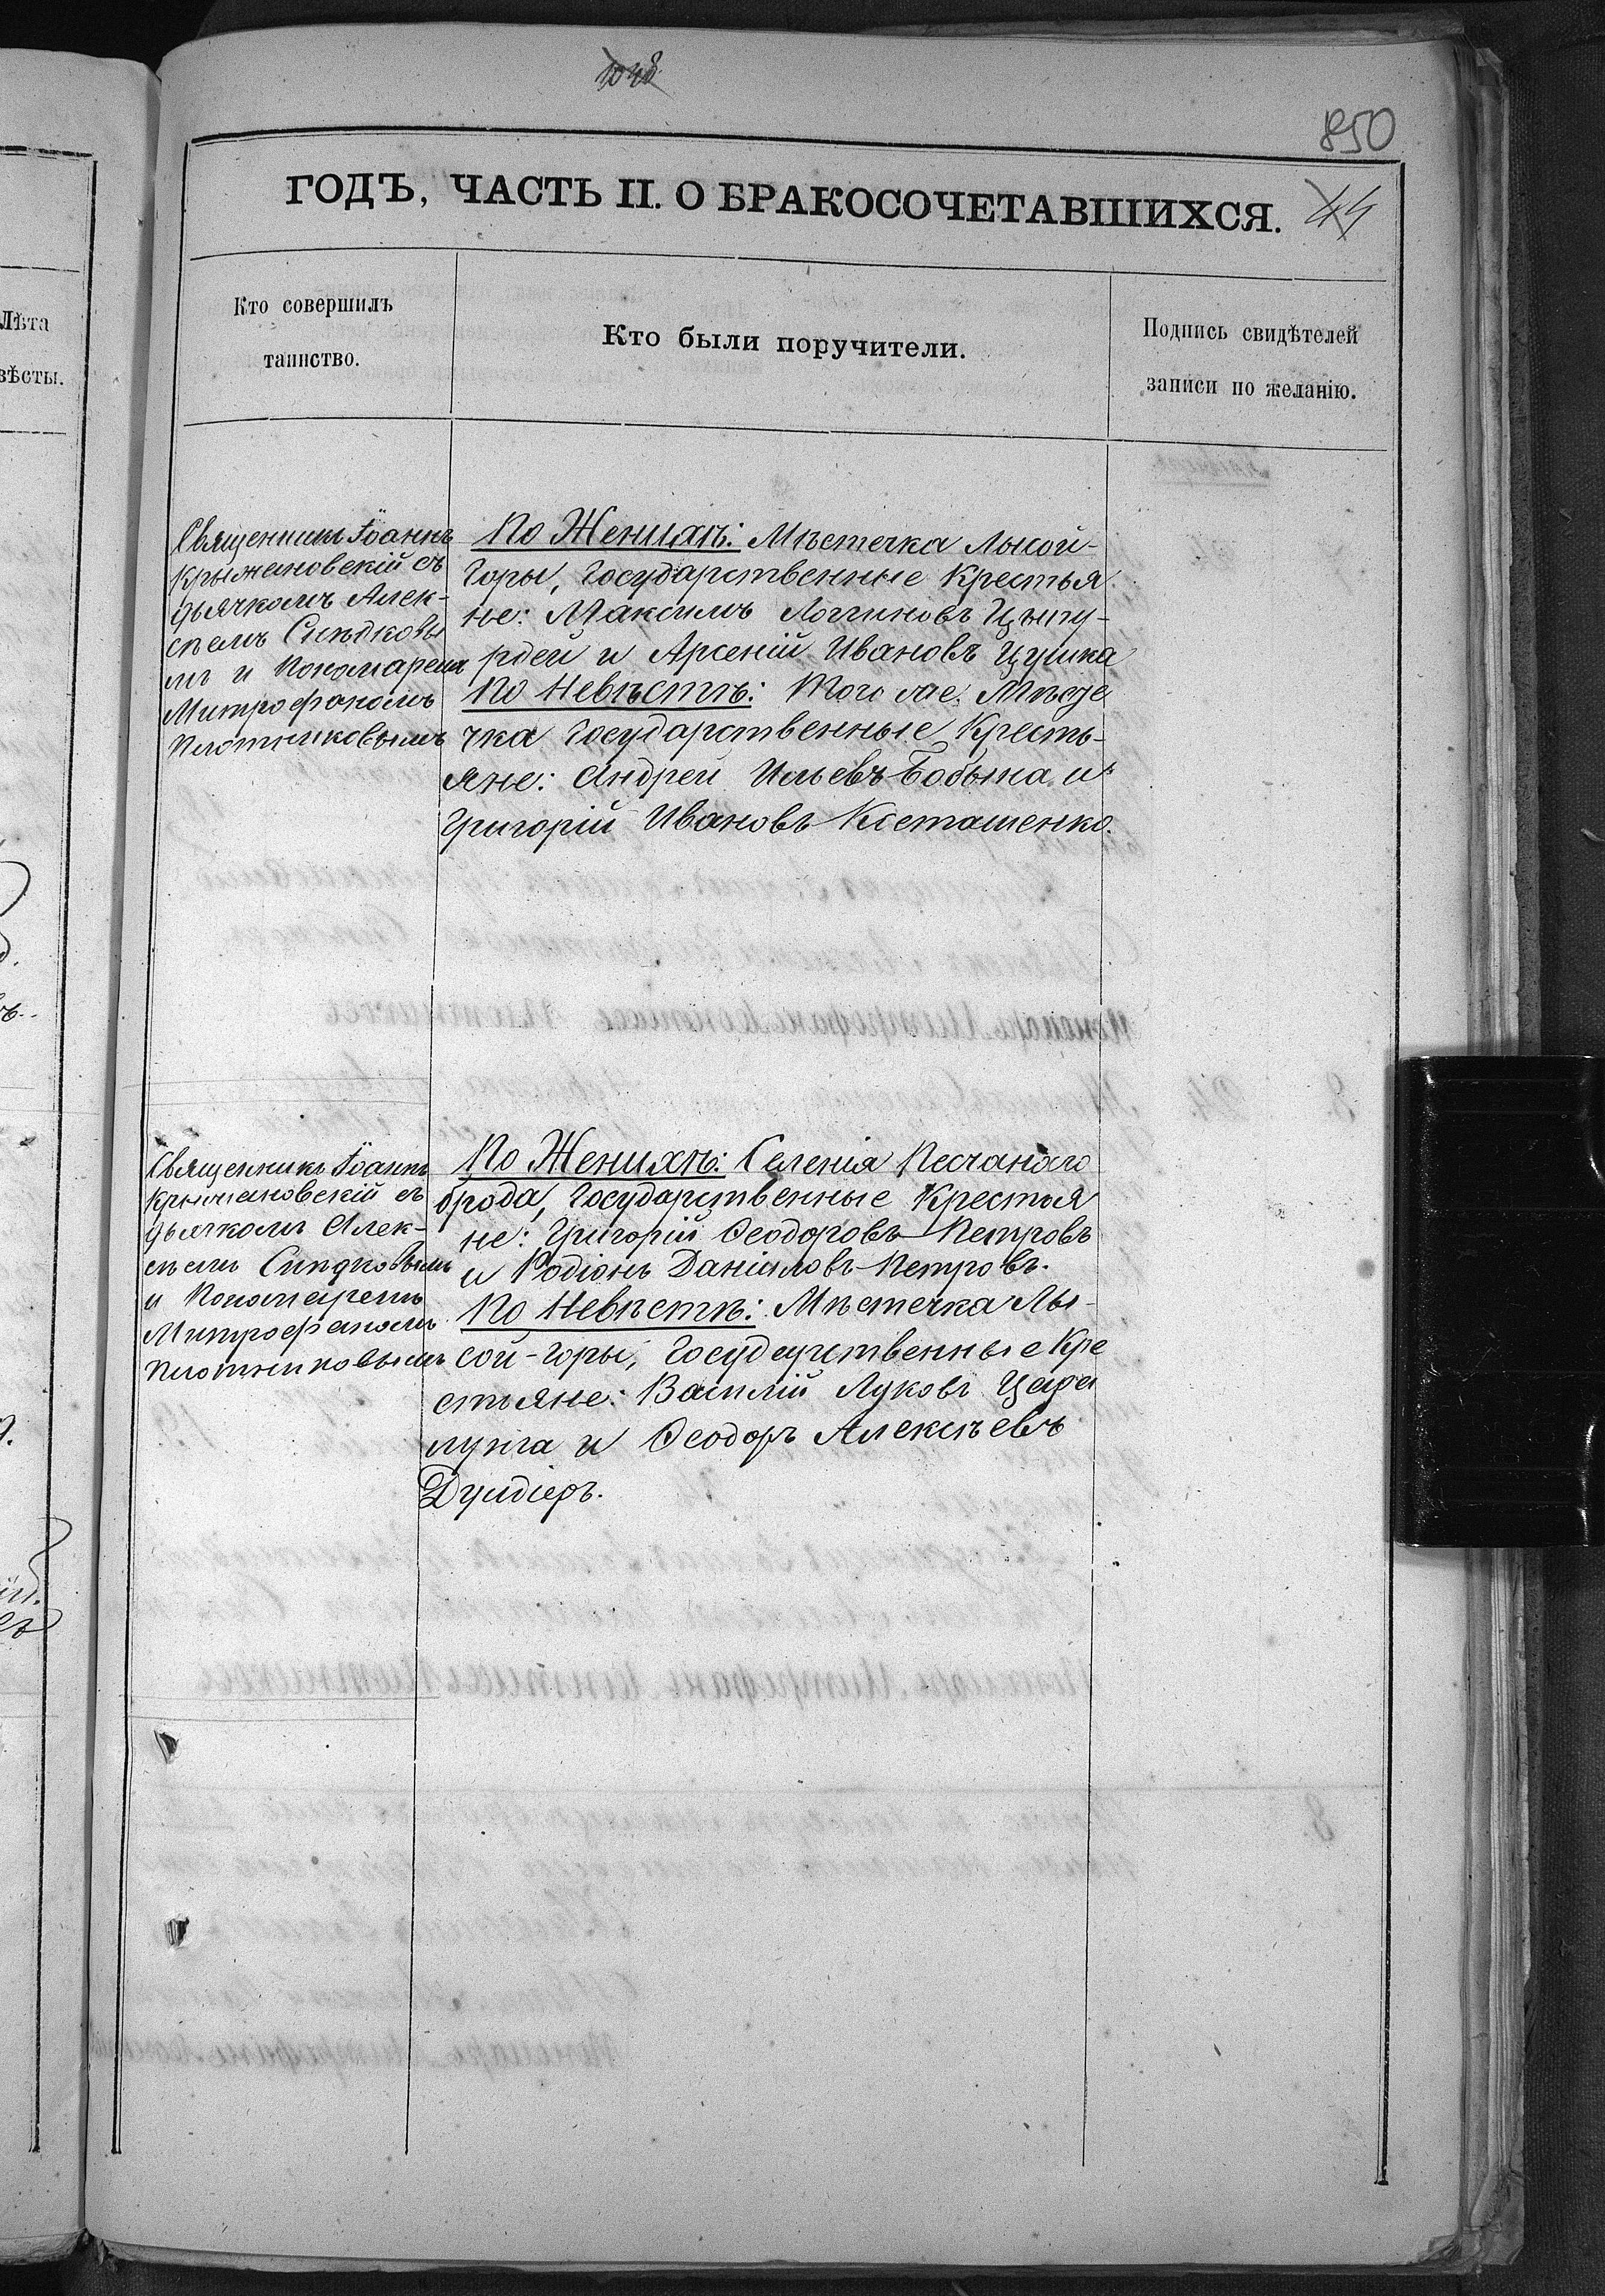 1048
850
ГОДЪ, ЧАСТЬ II. О БРАКОСОЧЕТАВШИХСЯ. 44
Лѣта
вѣсты.
Кто совершилъ
таинство.
Кто были поручители.
Подпись свидѣтелей
записи по желанію.
Священникъ Іоаннъ
Крыжановскій съ
дьячкомъ Алек-
сѣемъ Синѣковы
мъ и Пономаремъ
Митрофаномъ
Плотниковымъ
По Женихѣ: Мѣстечка Лысой-
Горы, Государственные Крестья
не: Максимъ Логгиновъ
рдей и Арсеній Ивановъ Цушка
По Невѣстѣ: Того же Мѣсте
чка Государственные Кресть-
яне: Андрей Ильевъ Бабына и
Григорій Ивановъ
Священникъ Іоаннъ
Крыжановскій съ
дьячкомъ Алек-
сѣемъ
и Пономаремъ
Митрофаномъ
Плотниковымъ
По Женихѣ: Селенія Песчанаго
брода, Государственные Крестья
не: Григорій Ѳеодоровъ Петровъ
и Родіонъ Даніиловъ Петровъ.
По Невѣстѣ: Мѣстечка Лы-
сой-Горы, Государственные Кре
стьяне: Василій Луковъ Цара
лунга и Ѳеодоръ Алексѣевъ
Думдіеръ.